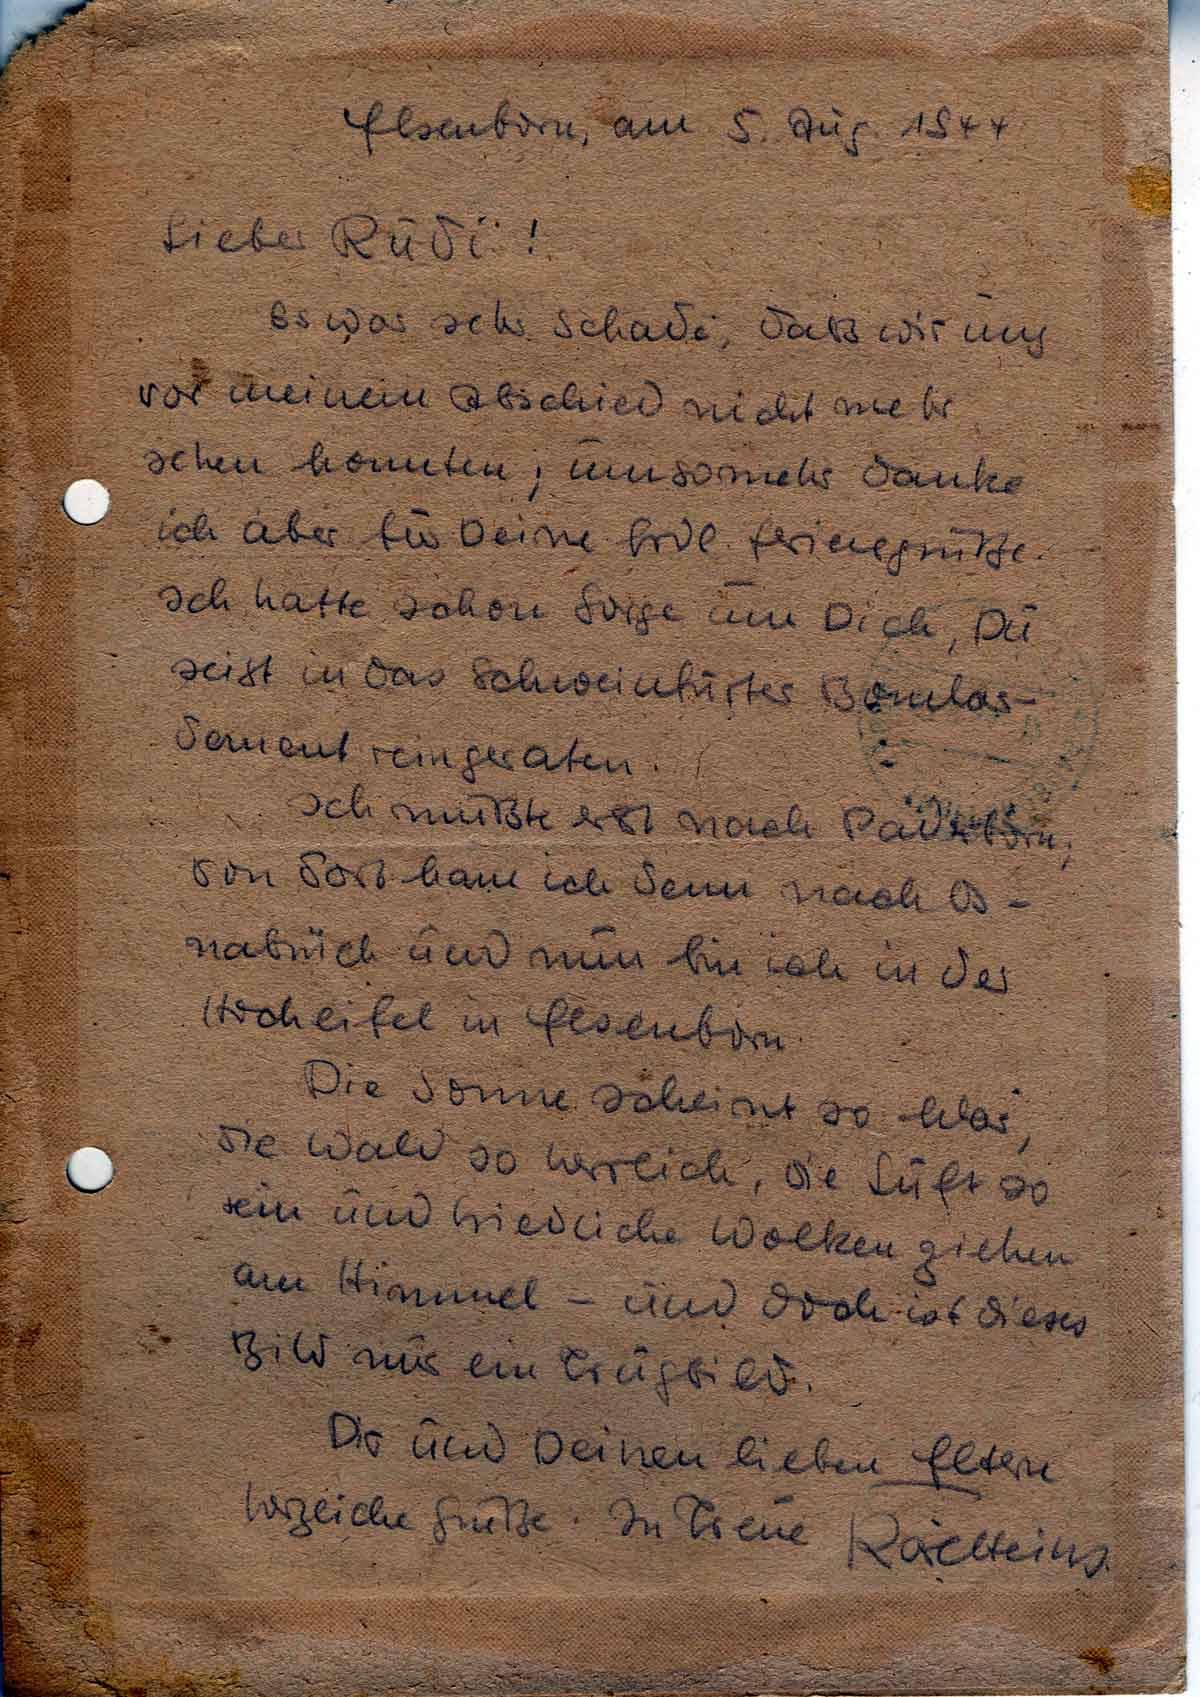 Elsenborn, am 5. Aug. 1944
Lieber Rudi!
Es war sehr schade, daß wir uns
vor meinem Abschied nicht mehr
sehen konnten; umsomehr danke
ich aber für Deine frdl. Feriengrüße.
Ich hatte schon Sorge um Dich, Du
seist in das Schweinfurter Bombar-
dement reingeraten.
Ich mußte erst nach Paderborn,
von dort kam ich dann nach Os-
nabrück und nun bin ich in der
Hocheifel in Elsenborn.
Die Sonne scheint so klar,
die Wald so herrlich, die Luft so
rein und friedliche Wolken ziehen
am Himmel – und doch ist dieses
Bild nur ein Trugbild.
Dir und Deinen lieben Eltern
herzliche Grüße. In Treue Karlheinz.